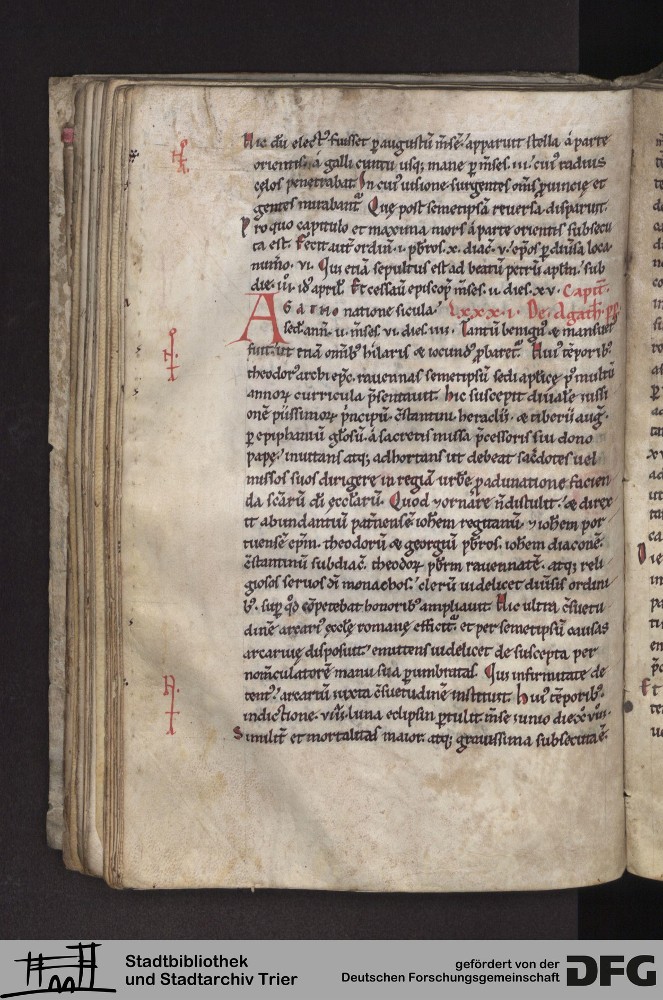 Hic dū elect᷒ fuisset p̲ augustū m̄sē. apparuit stella á parte
orientis. á galli cantu usq; mane p̲ m̄ses. iii. cui᷒ radius
cęlos penetrabat. In cui᷒ uisione surgentes om̄s ꝓuincię et
gentes mirabant᷑. Que post semetipsā reuersa disparuit.
Pro quo capitulo et maxima mors á parte orientis subsecu
ta est. Fecit aut̄ ordin̄. i. p̄bros. x. diac̄. v. ep̄os p̲ diūsa loca
num̄o. vi. Qui etiā sepultus est ad beatū petrū ap̄lm̄. sub
die. iii. id᷒ april̄. Et cessau̅ episcop̄. m̄ses. ii. dies. xv. Capit̄.
AGATHO natione sicula. Lxxx.i. De Agath. pp.
sed̄. ann̄. ii. m̄ses. vi. dies. iiii. Tantū benign᷒ & mansuet᷒
fuit. ut etiā omīb᷒ hilaris & iocund᷒ ꝓbaret᷑. Hui᷒ tēporib᷒
theodor᷒ archiep̄c. rauennas semetipsū sedi ap̄lice p᷒ multū
annoꝝ curricula p̄sentauit. Hic suscepit diuale iussi
onē piissimoꝝ p̄ncipū. c̄stantini. heraclii. & tiberii aug᷒.
p̲ epiphaniū gl̄osū. á sacretis missa p̄cessoris sui dono
pape. inuitans atq; adhortans ut debeat sac̄dotes uel
missos suos dirigere in regiā urbē p adunatione facien
da sc̄arū dī eccl̄arū. Quod & ornare n̄ distulit. & direx
it abundantiū pat̄nensē. ioh̄em regitanū. & ioh̄em por
tuensē ep̄m. theodorū & georgiū p̄bros. ioh̄em diaconē.
c̄stantinū subdiac̄. theodoꝝ p̄brm rauennatē. atq; reli
giosos seruos dī monachos. clerū uidelicet diūsis ordini
b᷒. sup̲ q̊d cōpetebat honorib᷒ ampliauit. Hic ultra c̄suetu
dinē arcari᷒ eccl̄ę romanę efficit᷑. et per semetipsū causas
arcarię disposuit. emittens uidelicet desuscepta per
nom̄culatorē manu sua p̲umbratas. Qui infirmitate de
tent᷒. arcariū iuxta c̄suetudinē instituit. hui᷒ tēporib᷒
indictione. viii. luna eclipsin p̲tulit m̄se iunio die xviii.
Similit̄ et mortalitas maior. atq; grauissima subsecuta ē.
Stadtbibliothek
und Stadtarchiv Trier
gefördert von der
Deutschen Forschungsgemeinschaft
DFG